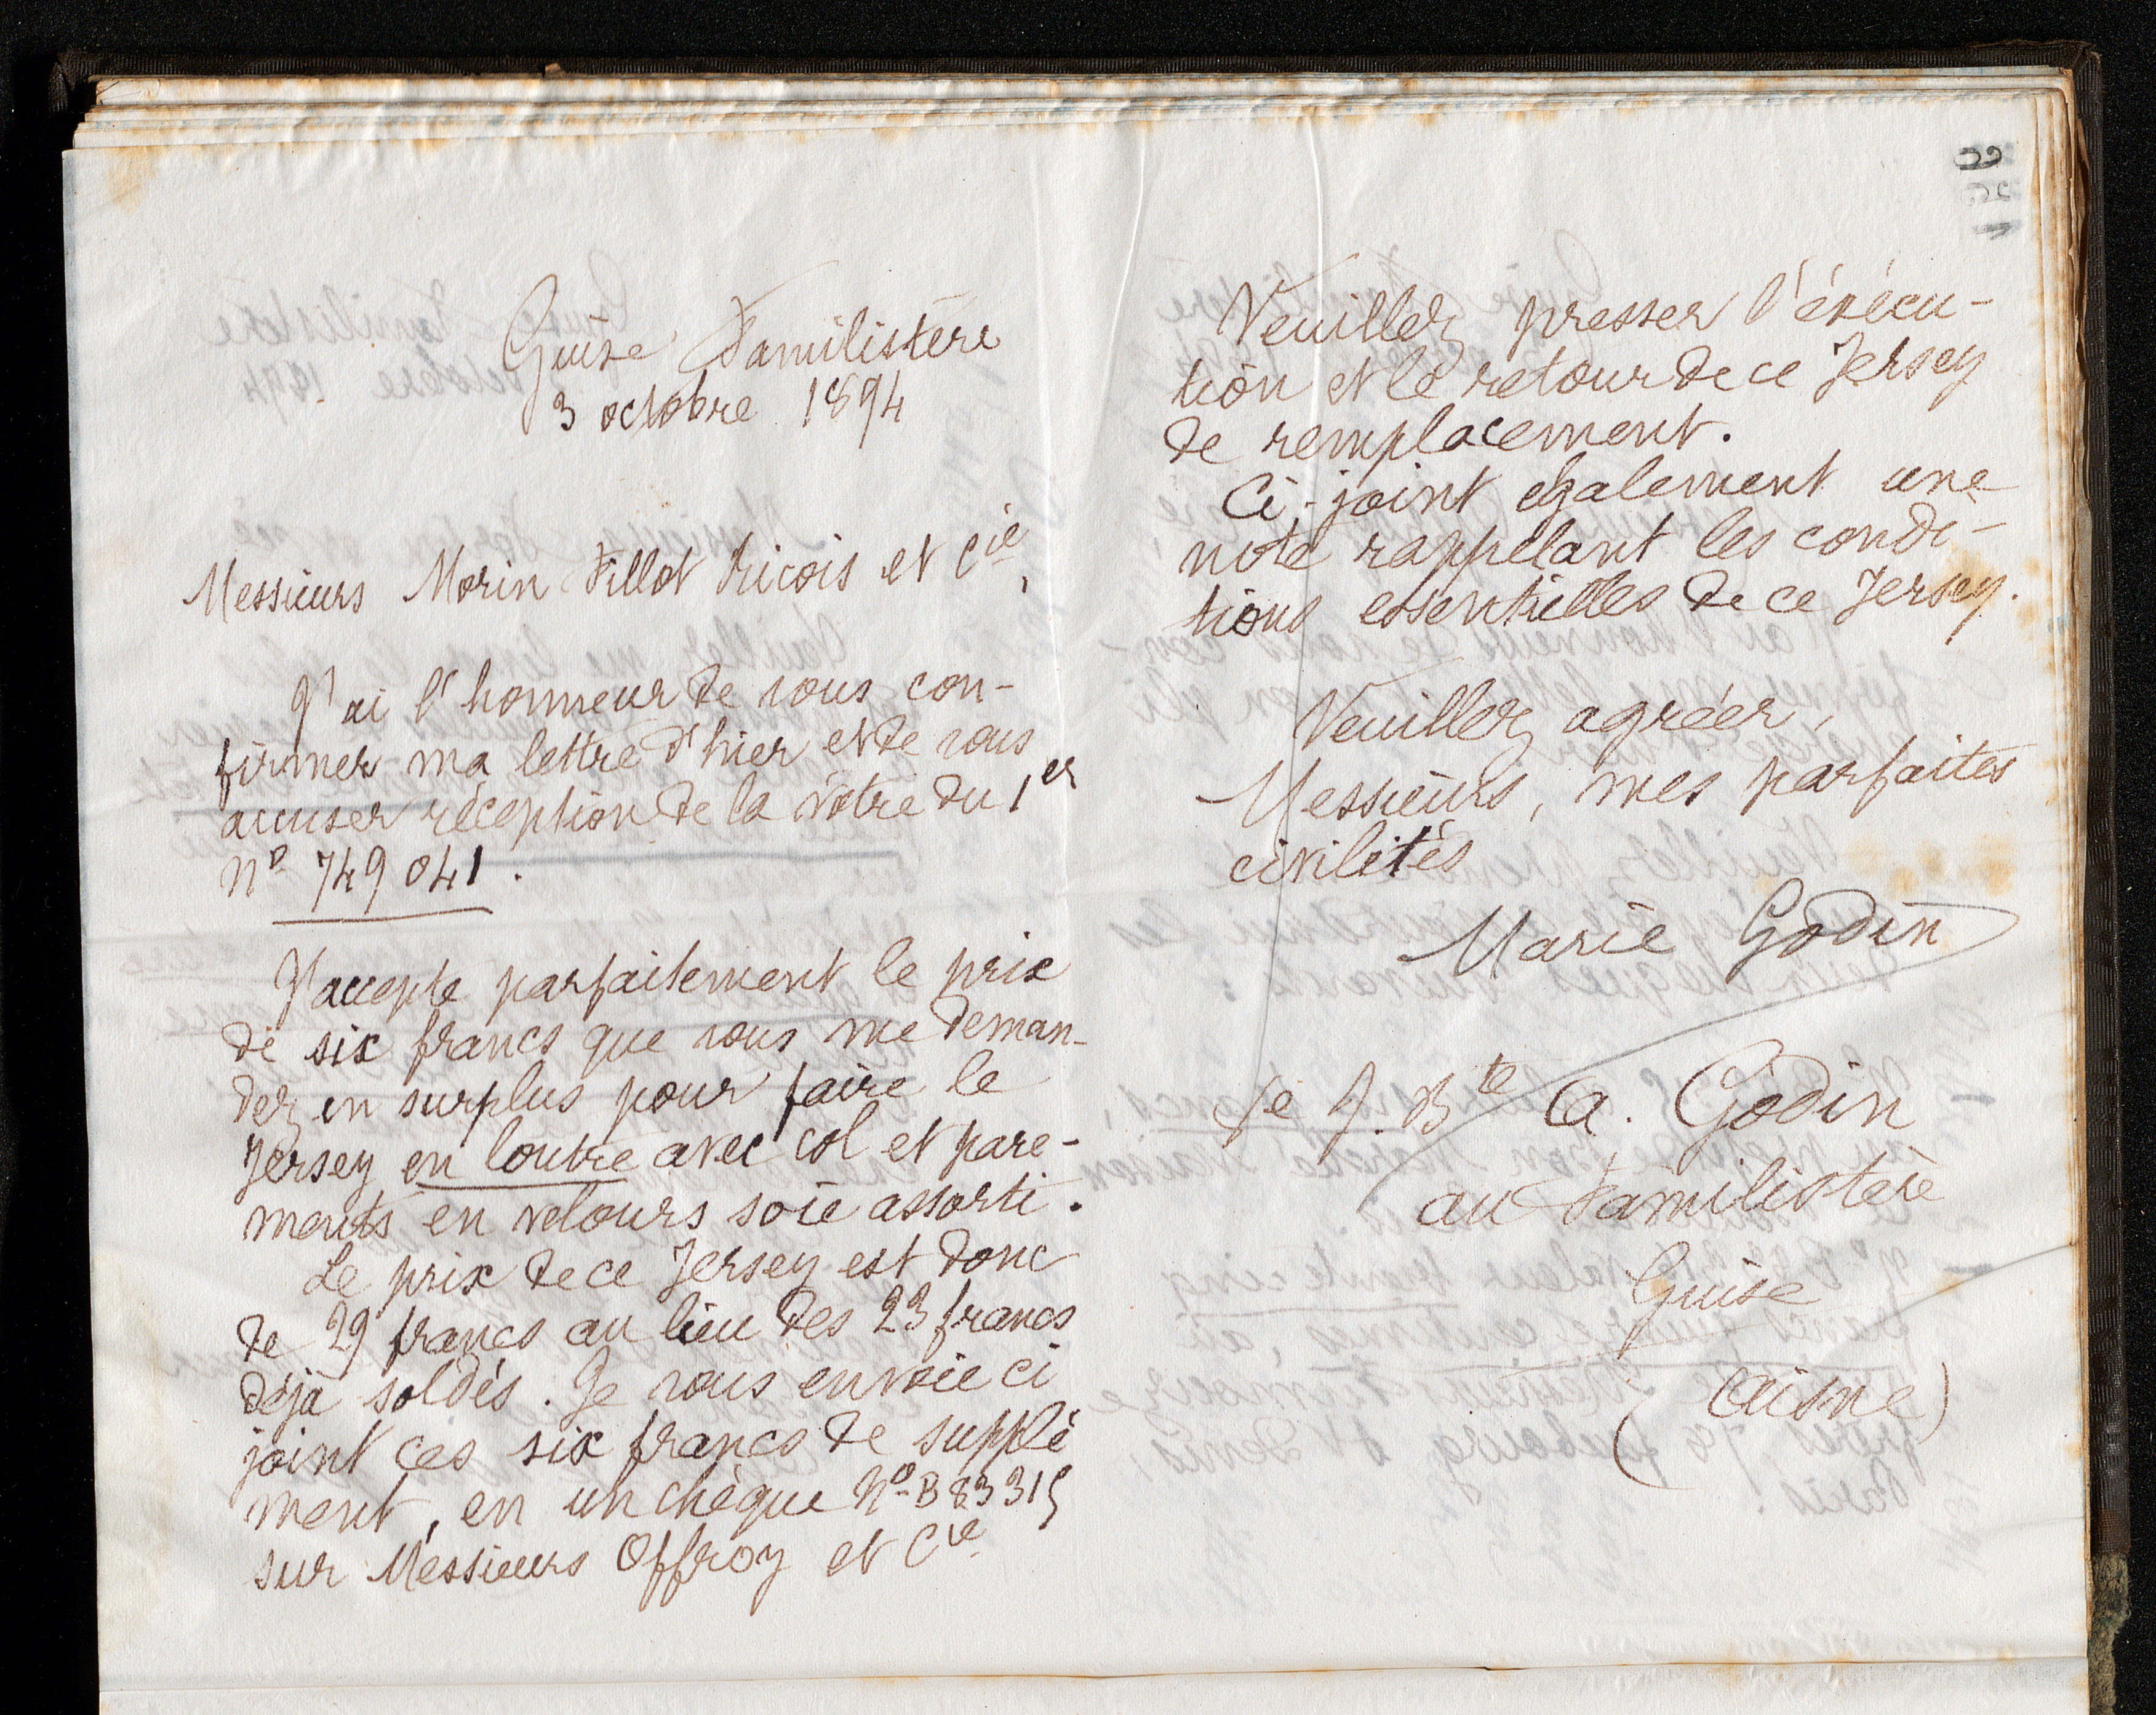 Guise Familistère
3 octobre 1894
Messieurs Morin Fillot Ricois et Cie,
J'ai l'honneur de vous con-
firmer ma lettre d'hier et de vous
accuser réception de la vôtre du 1er
No 749 041.
J'accepte parfaitement le prix
de six francs que vous me deman-
dez en surplus pour faire le
Jersey en loutre avec col et pare-
ments en velours soie assorti.
Le prix de ce Jersey est donc
de 29 francs au lieu des 23 francs
déjà soldés. Je vous envoie ci
joint ces six francs de supplé
ment, en un chèque No B 83 315
sur Messieurs Offroy et Cie
Veuillez presser l'éxécu-
tion et le retour de ce Jersey
de remplacement.
Ci-joint également une
note rappelant les condi-
tions essentielles de ce Jersey.
Veuillez agréer,
Messieurs, mes parfaites
civilités
Marie Godin
Je J. Bte A. Godin
au Familistère
Guise
(Aisne)